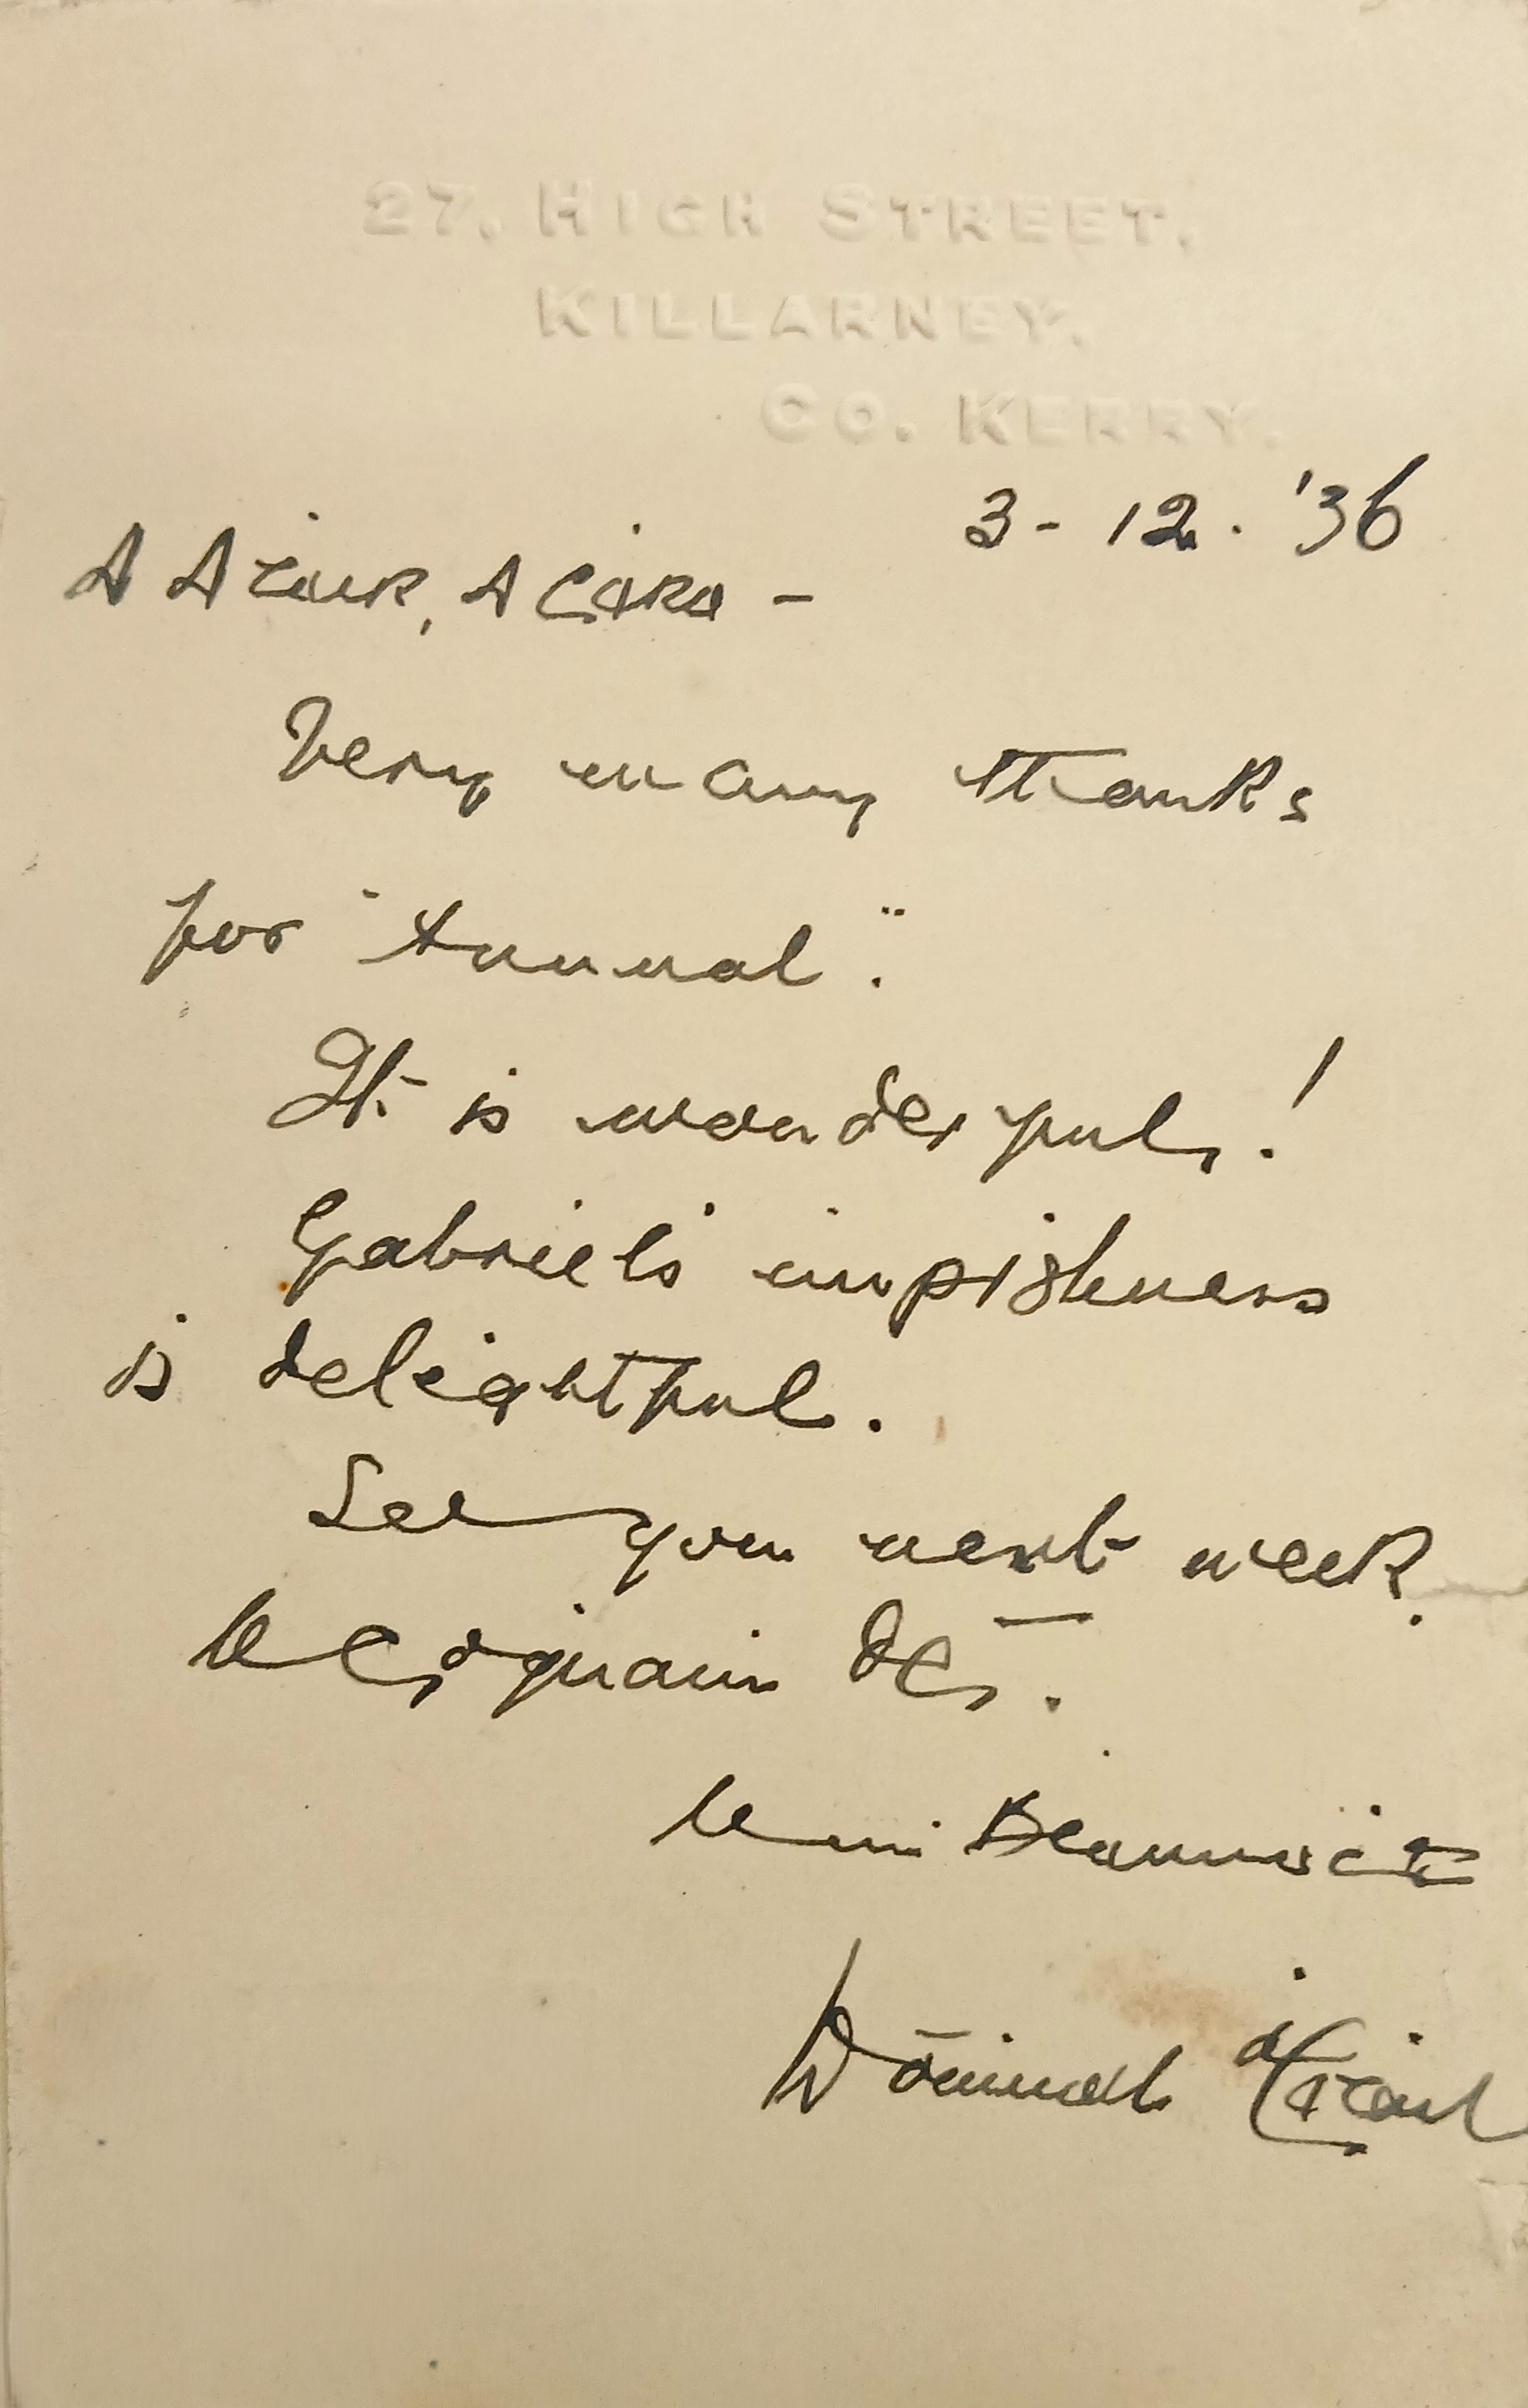 27, HIGH STREET.
KILLARNEY.
CO. KERRY.
3 - 12 . '36
A Aṫair, A Ċara -
Very many thanks
for "Annual".
It is wonderful!
Gabriel's impishness
is delightful.
See you next week.
le Dé.
le Beannaċt
Dómnall